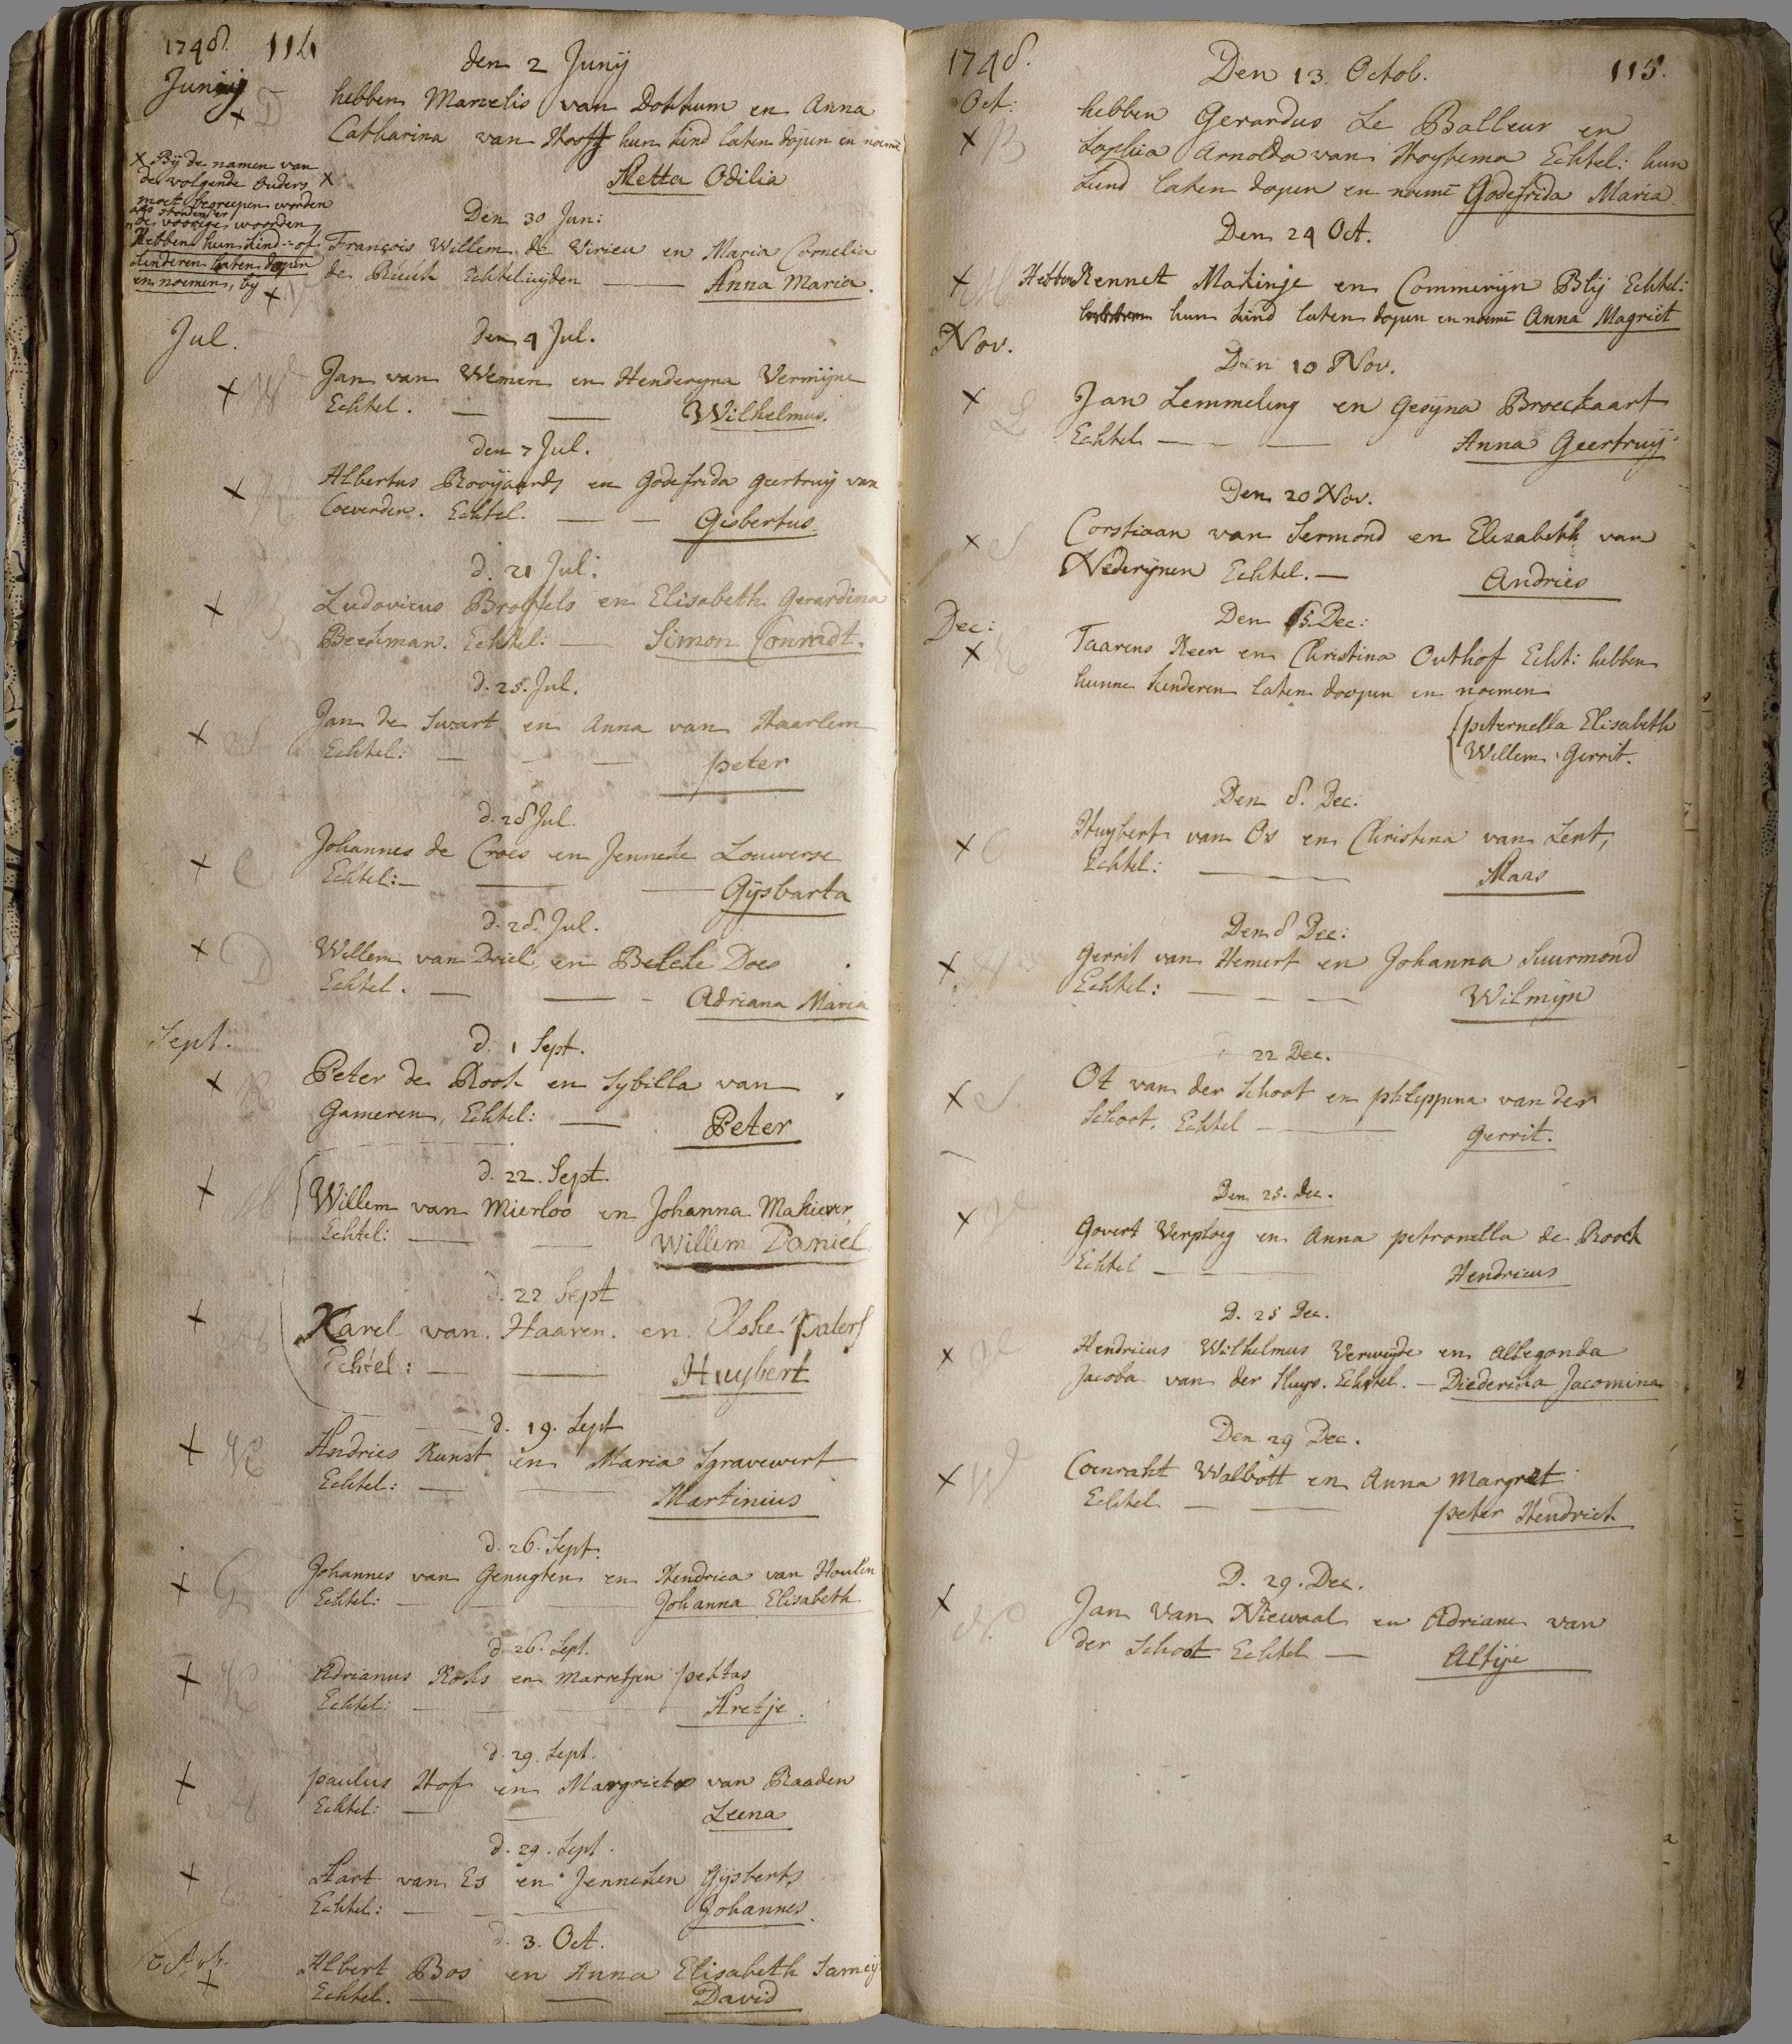 1748. 114
den 2 Junij
Junij
hebben Marcelis van Dokkum en Anna
Catharina van Hooff hun kind laten dopen en noeme
Metta Odilia
X Bij de namen van
de volgende Ouders X
moet begreepen worden
als stonden er
de voorige woorden,
Hebben hun kind of
kinderen laten dopen
en noemen, by
Den 30 Jun:
François Willem de Virieu en Maria Cornelia
de Ruuk Echteluijden Anna Maria.
Jul.
den 4 Jul.
Jan van Wemen en Henderyna Vermijne
Echtel. Wilhelmus.
den 7 Jul.
Albertus Rooijaards en Godefrida geertruij van
Coeverden. Echtel. Gisbertus
d. 21 Jul:
Ludovicus Broffels en Elisabeth Gerardina
Beekman. Echtel: Simon Conradt.
d. 25. Jul.
Jan de Swart en Anna van Haarlem
Echtel: peter
d. 28 Jul.
Johannes de Croes en Jenneke Louwerse
Echtel: Gijsbarta
d. 28. Jul.
Willem van Driel en Beleke Does
Echtel. Adriana Maria
Sept.
d. 1 Sept.
Peter de Rook en Sybilla van
Gameren, Echtel: Peter
d. 22. Sept.
Willem van Mierloo en Johanna Makiever
Echtel: Willem Daniel
d. 22 Sept
Karel van Haaren. en Elske Paters
Echtel: Huybert
d. 19. Sept
Andries Kunst en Maria Sgravewert
Echtel: Martinius
d. 26. Sept.
Johannes van Genugten en Hendrica van Houlin
Echtel: Johanna Elisabeth
d. 26. Sept.
Adrianus Koks en Marretjen pekkas
Echtel: Aretje.
d. 29. Sept.
paulus Hof en Margrieta van Raaden
Echtel: Leena
d. 29. Sept.
Aart van Es en Jenneken Gijsberts
Echtel: Johannes.
d. 3. Oct.
Octob.
Albert Bos en Anna Elisabeth
Echtel. David
1748. Den 13. Octob. 115.
Oct:
hebben Gerardus Le Balleur en
Sophia Arnolda van Hoytema Echtel: hun
kind laten dopen en noeme Godefrida Maria
Den 24 Oct.
Hebben Kennet Makinje en Commerijn Blij Echtel:
hun kind laten dopen en noeme Anna Magriet
Nov.
Den 10 Nov.
Jan Lemmeling en Gesijna Broeckaart
Echtel Anna Geertruij
Den 20 Nov.
Corstiaan van Sermond en Elisabeth van
Nederijnen Echtel. Andries
Dec:
Den 5. Dec:
Taarens Keer en Christina Outhof Echt: hebben
hunne kinderen laten doopen en noemen
peternella Elisabeth
Willem Gerrit.
Den 8. Dec:
Huybert van Os en Christina van Lent,
Echtel: Maas
Den 8 Dec:
gerrit van Hemert en Johanna Suurmond
Echtel: Wilmijn
22 Dec.
Ot van der Schoot en philippina van der
Schoot, Echtel gerrit.
Den 25. dec.
Govert Verploeg en Anna petronella de Roock
Echtel Hendricus
D. 25 Dec.
Hendricus Wilhelmus Verweyde en Allegonda
Jacoba van der Sluys. Echtel. Diederika Jacomina
Den 29 Dec.
Coenraht Walbott en Anna Margret
Echtel peter Hendrick
D. 29. Dec.
Jan Van Niewaal en Adriana van
der Schoot Echtel Altije